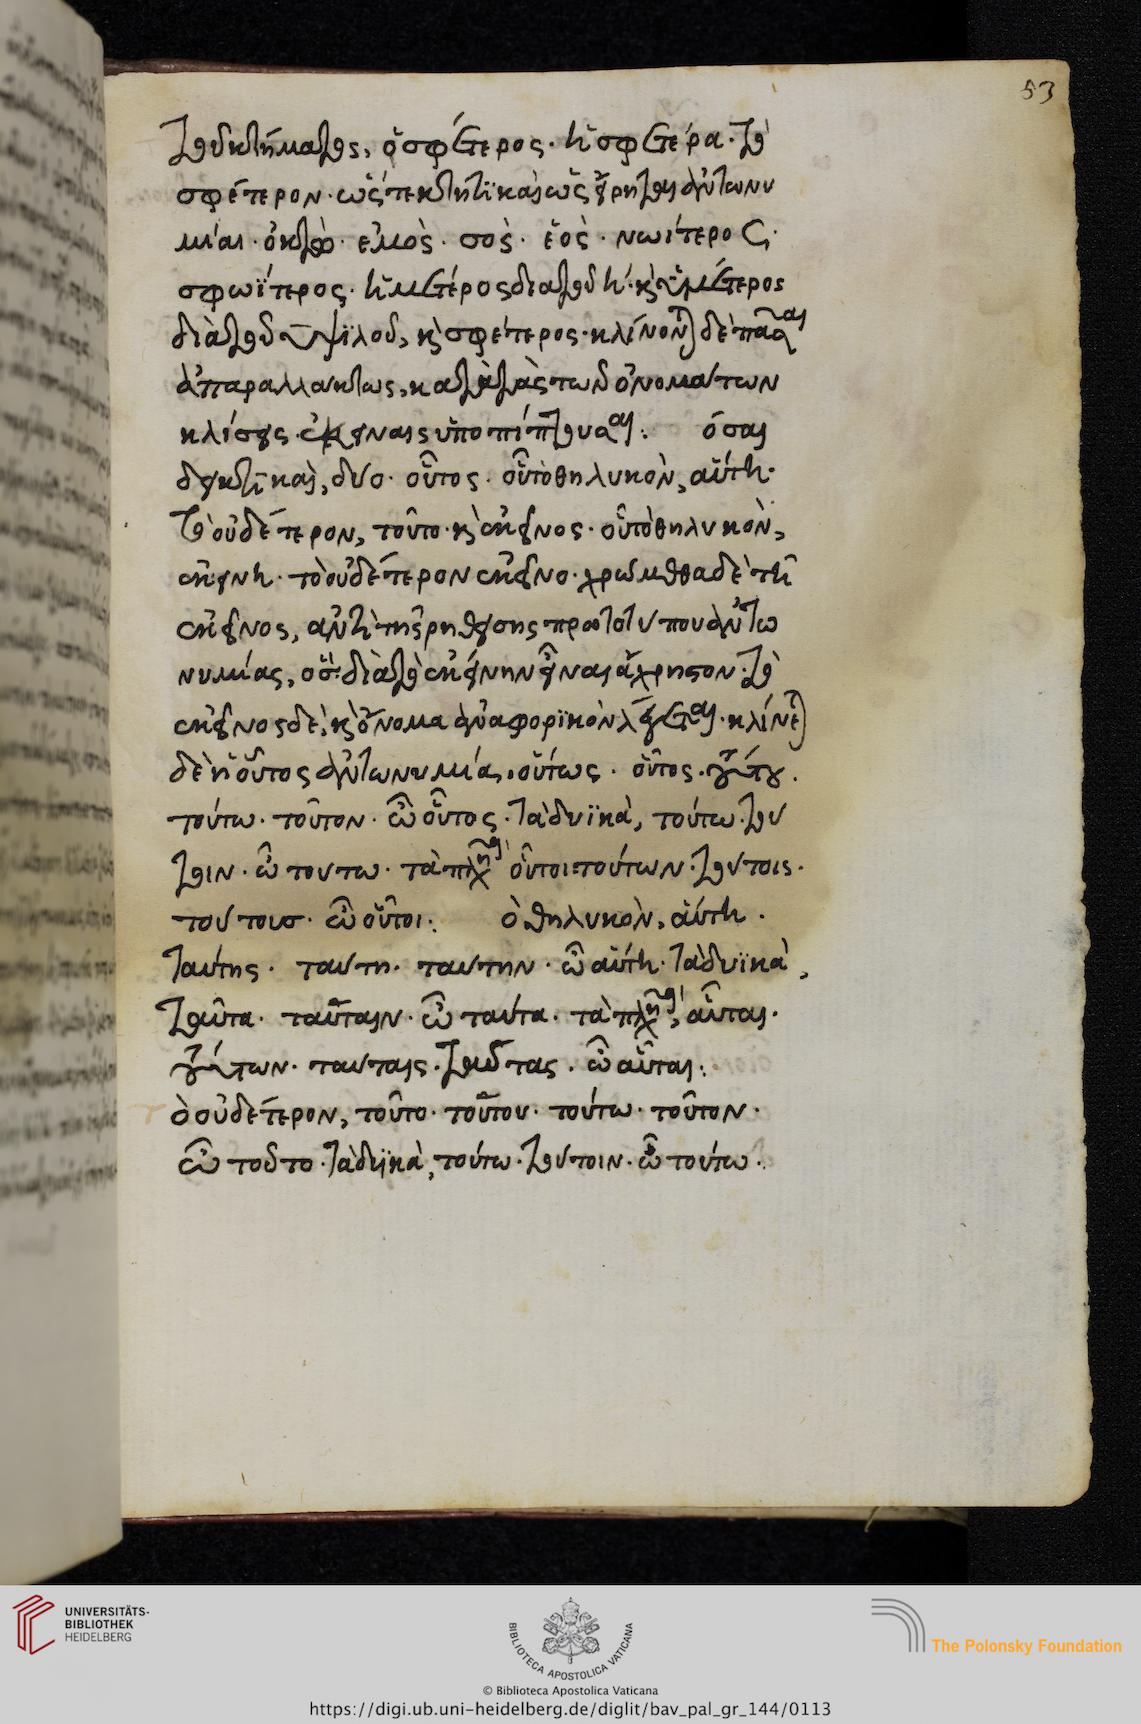 53
τοῦ κτήματος, ὁ σφέτερος· ἡ σφετέρα· τὸ
σφέτερον· ὥσπερ κτητικαὶ ὡς εἴρηται ἀντωνυ
μίαι· ὀκτώ· ἐμὸς· σὸς· ἑὸς· νωίτερος·
σφωΐτερος· ἡμέτερος διὰ τοῦ η· καὶ ὑμέτερος
διὰ τοῦ υ ψιλοῦ, καὶ σφέτερος· κλίνονται δὲ πᾶσαι
ἀπαραλλάκτως, κατὰ τὰς τῶν ὀνομάτων
κλίσεις ἐκείναις ὑποπίπτουσαι: ὅσαι
δεικτικαὶ, δύο· οὗτος· οὗ τὸ θηλυκὸν, αὕτη·
τὸ οὐδέτερον, τοῦτο· καὶ ἐκεῖνος· οὗ τὸ θηλυκὸν,
ἐκείνη· τὸ οὐδέτερον ἐκεῖνο· χρώμεθα δὲ τῆ
ἐκεῖνος, ἀντὶ τῆς ῥηθείσης πρωτοτύπου ἀντω
νυμίας, διὰ τὸ ἐκείνην εἶναι ἄχρηστον· τὸ
ἐκεῖνος δὲ, καὶ ὄνομα ἀναφορϊκὸν λέγεται· κλίνεται
δὲ ἡ οὗτος ἀντωνυμία, οὕτως· οὗτος· τούτου·
τούτω· τοῦτον· ὦ οὗτος· τὰ δυϊκὰ, τούτω· του
τοιν· ὦ τουτω· τὰ πληθ οὗτοι· τούτων· τουτοις·
τουτουσ· ὦ οὗτοι: ὁ θηλυκὸν, αὕτη·
ταύτης· ταυτη· ταυτην· ὦ αὕτη· τὰ δυϊκὰ,
ταῦτα· ταῦταιν· ὦ ταύτα· τὰ πληθ, αὗται·
τούτων· ταυταις· ταύτας· ὦ αὗται:
ὸ οὐδέτερον, τοῦτο· τοῦτου· τούτω· τοῦτον·
ὦ τοῦτο· τὰ δυϊκὰ, τούτω· τουτοιν· ὦ τούτω·
UNIVERSITÄTS-
BIBLIOTHEK
HEIDELBERG
BIBLIOTECA APOSTOLICA VATICANA
The Polonsky Foundation
© Biblioteca Apostolica Vaticana
https://digi.ub.uni-heidelberg.de/diglit/bav_pal_gr_144/0113